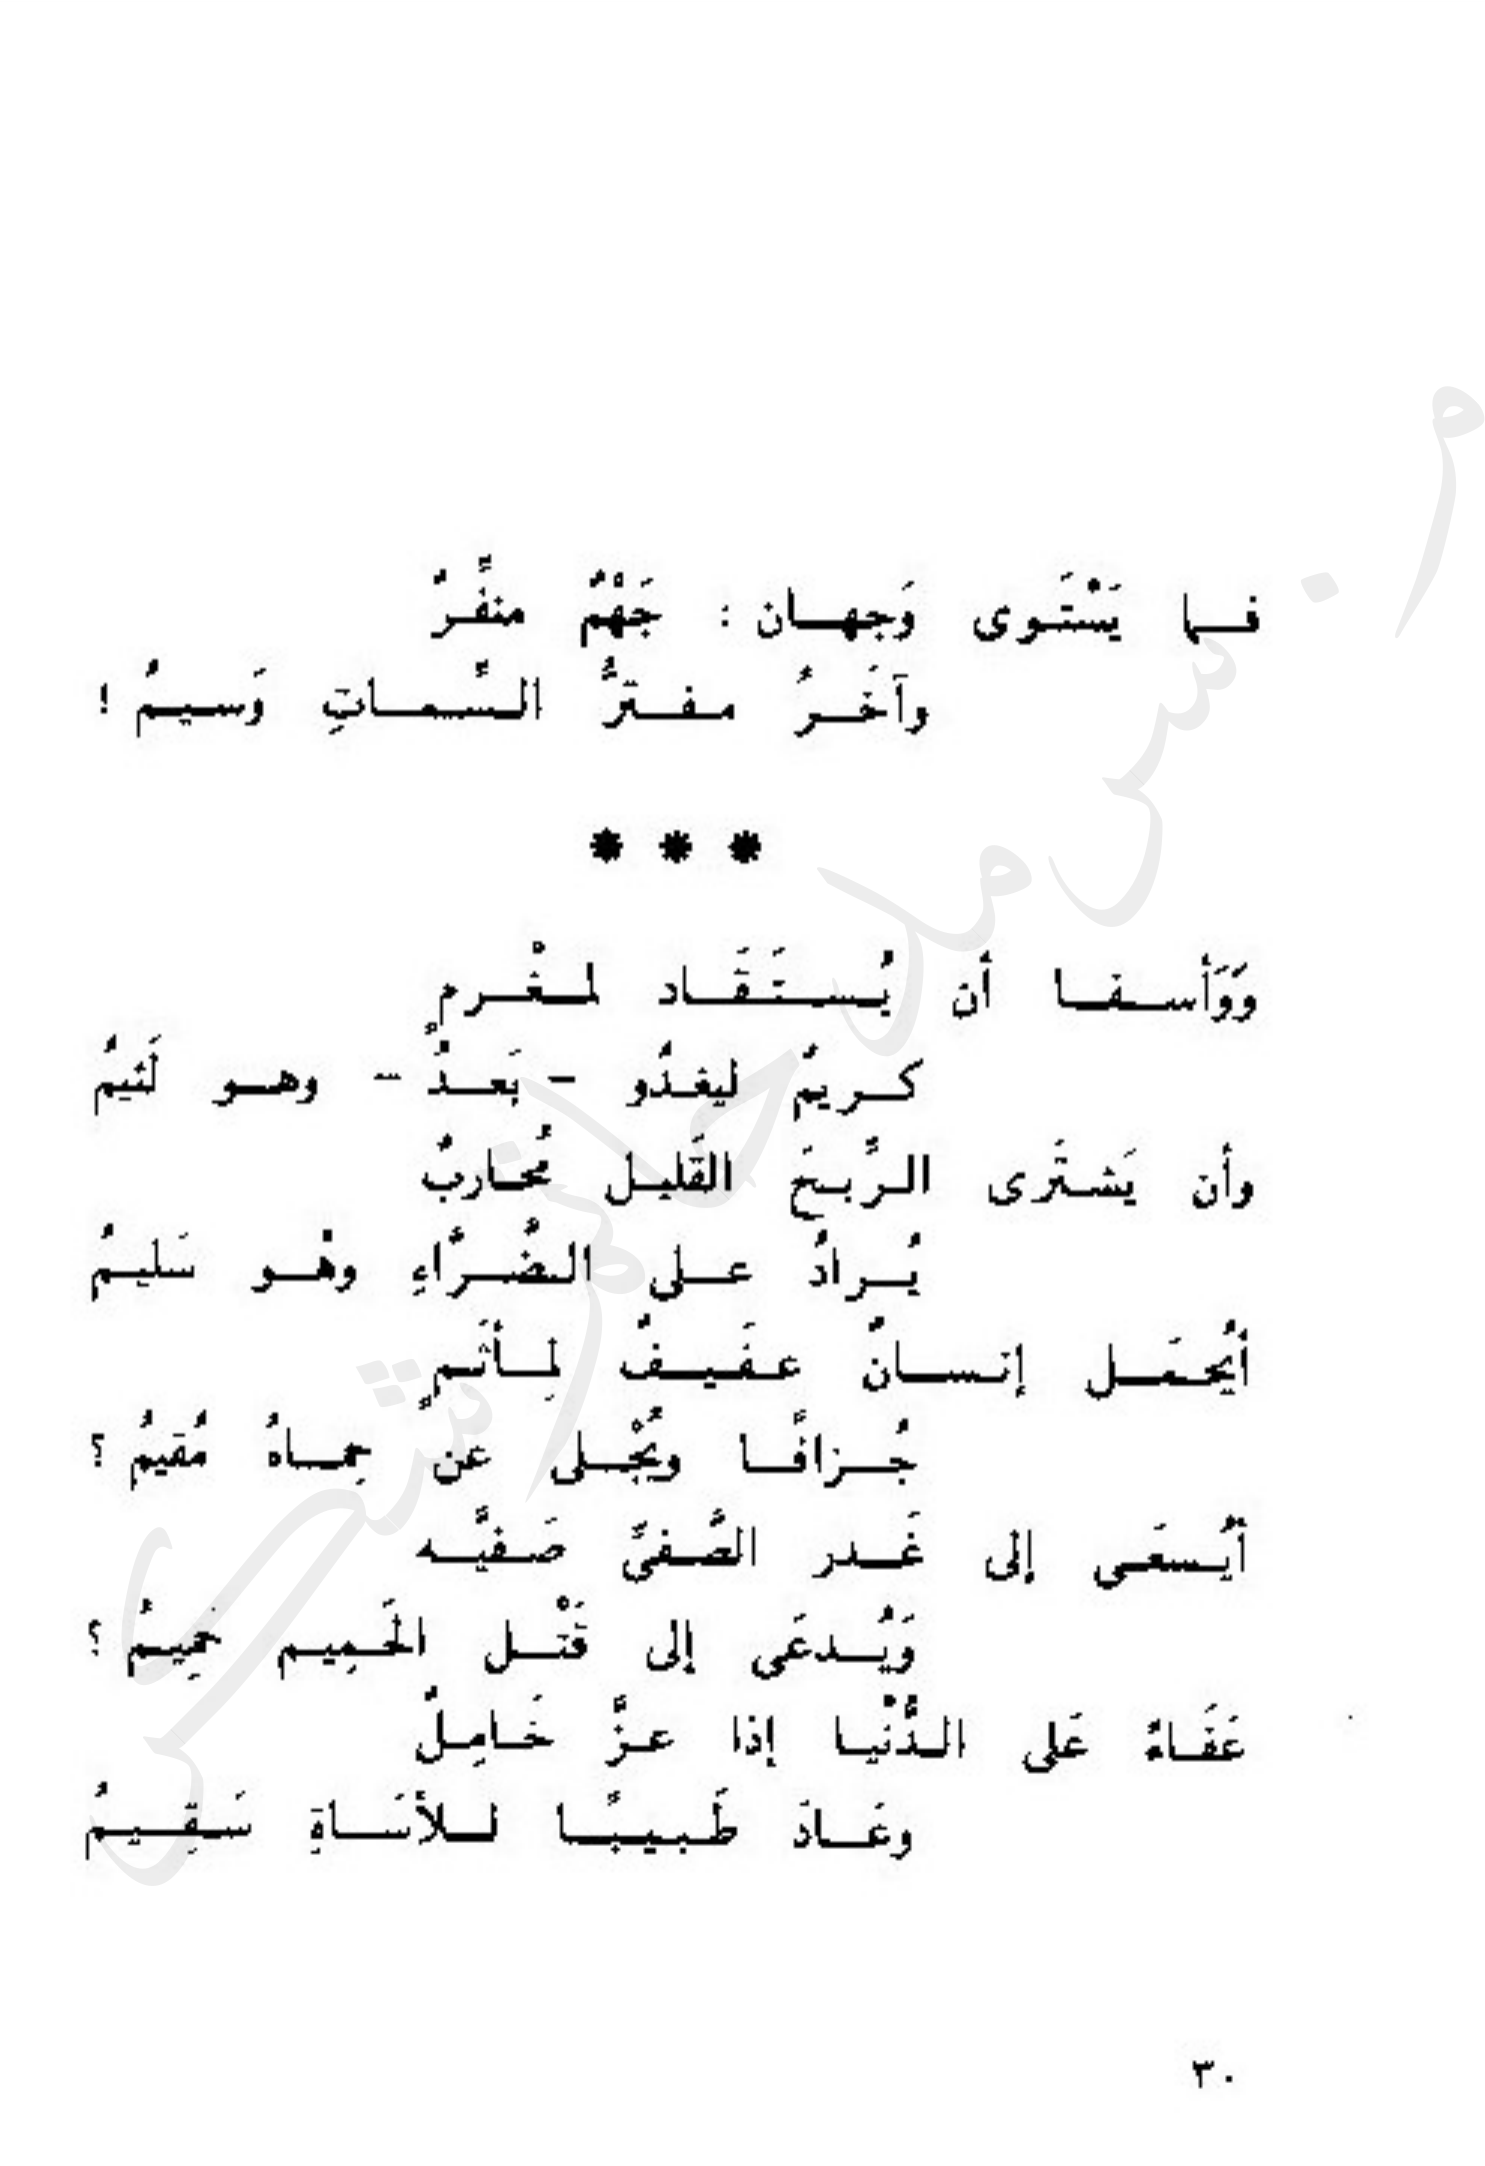 فما يَسْتَوى وَجهان : جَهْمٌ منفِّرٌ
وآخَرُ مفترُّ السِّماتِ وَسيمُ !
* * *
وَوَأسفا أن يُستَقَاد لمغْرمٍ
كريمٌ ليغدُو - بَعدُ - وهو لَئيمُ
وأن يَشتَرى الرِّبحَ القَليل مُحاربٌ
يُرادُ على الضُرَّاءِ وهْو سَليمُ
أيُحمَل إنسانٌ عفَيفٌ لِمأثَمٍ
جُزافًا ويُجْلى عن حِماهُ مُقيمُ ؟
أيُسعَى إلى غَدر الصَّفىِّ صَفيَّه
وَيُدعَى إلى قَتْل الحَمِيم حَمِيمُ ؟
عَفَاءٌ عَلى الدُّنْيا إذا عزَّ خَامِلٌ
وعَادَ طَبيبًا للأسَاةِ سَقِيمُ
٣٠